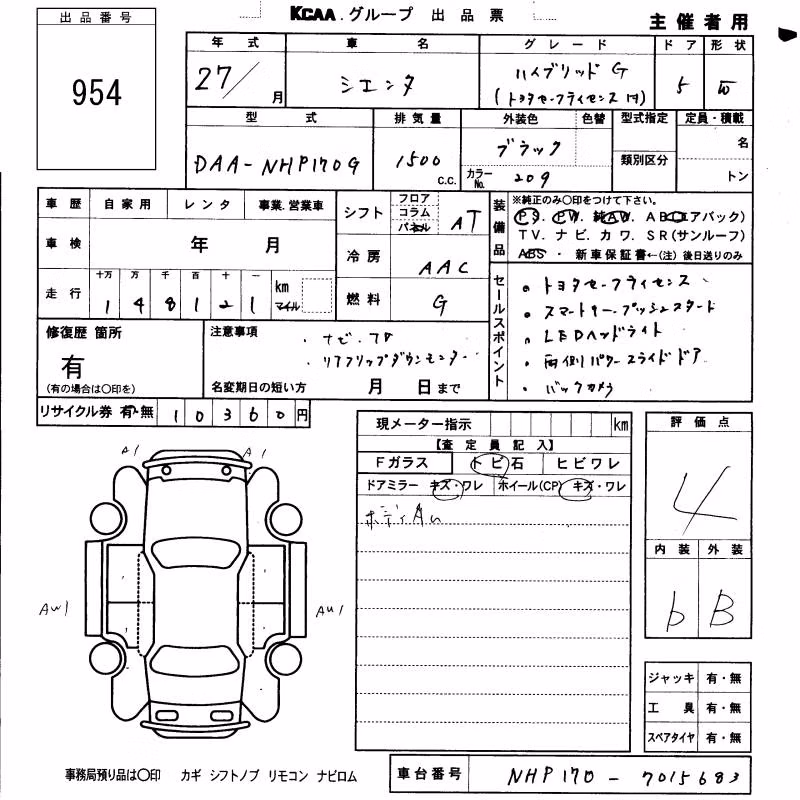 出品番号
954
KCAA.グループ 出品票
主催者用
年式 車名 グレード ドア 形状
27/ 月 シエンタ ハイブリッドG 5 W
(トヨタセーフティセンス付)
型式 排気量 外装色 色替 型式指定 定員・積載
DAA-NHP170G 1500 c.c. ブラック 名
カラーNo. 209 類別区分 トン
車歴 自家用 レンタ 事業.営業車
車検 年 月
走行 十万 万 千 百 十 一 km マイル
148121
シフト フロア コラム パネル AT
冷房 AAC
燃料 G
装備品
※純正のみ○印をつけて下さい。
PS. PW. 純AW. ABC(エアバック)
TV. ナビ. カワ. SR(サンルーフ)
ABS ・ 新車保証書←(注)後日送りのみ
セールスポイント
・トヨタセーフティセンス
・スマートキー.プッシュスタート
・LEDヘッドライト
・両側パワースライドドア
・バックカメラ
修復歴 箇所
有
(有の場合は○印を)
注意事項
・ナビ.フロ
・リアフリップダウンモニター
名変期日の短い方 月 日まで
リサイクル券 有・無 10360円
現メーター指示 km
【査定員記入】
Fガラス トビ石 ヒビワレ
ドアミラー キズ・ワレ ホイール(CP) キズ・ワレ
評価点
4
内装 外装
b B
A1 A1
AW1 AU1
ジャッキ 有・無
工具 有・無
スペアタイヤ 有・無
事務局預り品は○印 カギ シフトノブ リモコン ナビロム
車台番号 NHP170-7015683